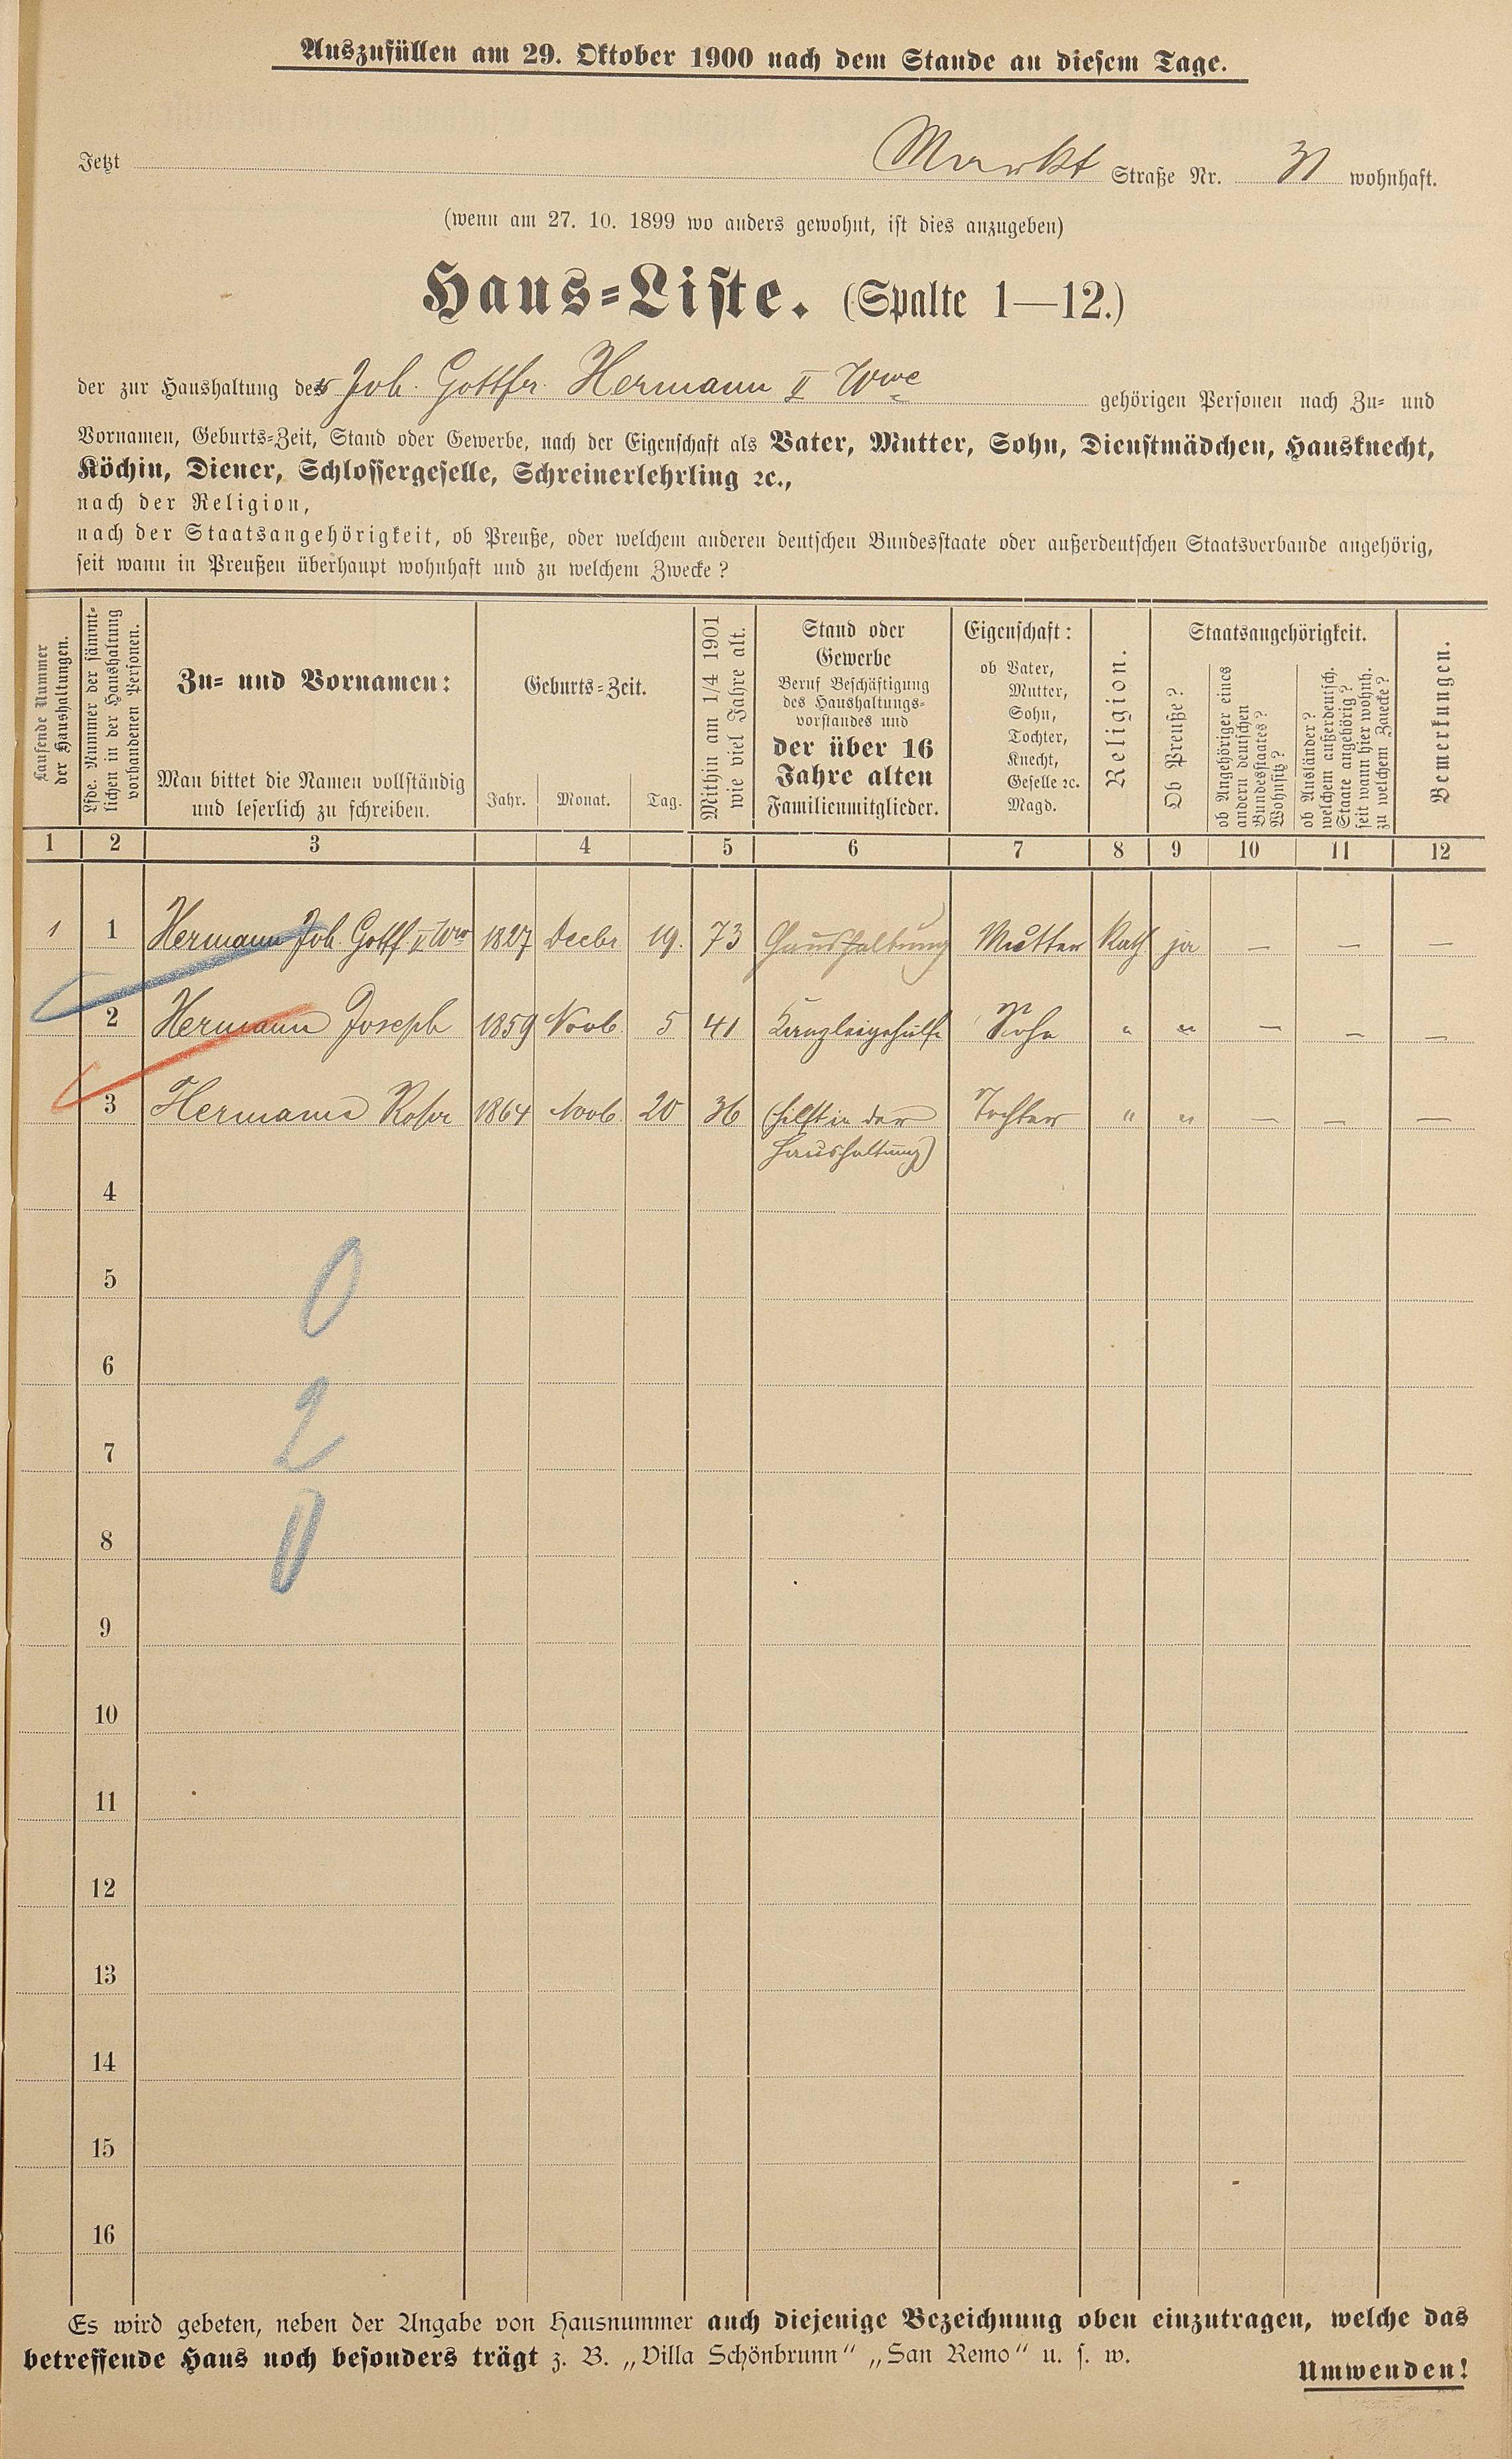 Auszufüllen am 29. Oktober 1900 nach dem Stande an diesem Tage.
Jetzt Markt Straße Nr. 31 wohnhaft.
(wenn am 27. 10. 1899 wo anders gewohnt, ist dies anzugeben)
Haus-Liste. (Spalte 1—12.)
der zur Haushaltung der Joh. Gottfr. Hermann II Wwe gehörigen Personen nach Zu- und
Vornamen, Geburts-Zeit, Stand oder Gewerbe, nach der Eigenschaft als Vater, Mutter, Sohn, Dienstmädchen, Hausknecht,
Köchin, Diener, Schlossergeselle, Schreinerlehrling ꝛc.,
nach der Religion,
nach der Staatsangehörigkeit, ob Preuße, oder welchem anderen deutschen Bundesstaate oder außerdeutschen Staatsverbande angehörig,
seit wann in Preußen überhaupt wohnhaft und zu welchem Zwecke?
Laufende Nummer
der Haushaltungen.
Lfde. Nummer der sämmt-
lichen in der Haushaltung
vorhandenen Personen.
Zu- und Vornamen:
Man bittet die Namen vollständig
und leserlich zu schreiben.
Geburts-Zeit.
Jahr. Monat. Tag.
Mithin am 1/4 1901
wie viel Jahre alt.
Stand oder
Gewerbe
Beruf Beschäftigung
des Haushaltungs-
vorstandes und
der über 16
Jahre alten
Familienmitglieder.
Eigenschaft:
ob Vater,
Mutter,
Sohn,
Tochter,
Knecht,
Geselle ꝛc.
Magd.
Religion.
Staatsangehörigkeit.
Ob Preuße?
ob Angehöriger eines
andern deutschen
Bundesstaates?
Wohnsitz?
ob Ausländer?
welchem außerdeutsch.
Staate angehörig?
seit wann hier wohnh.
zu welchem Zwecke?
Bemerkungen.
1 2 3 4 5 6 7 8 9 10 11 12
1 1 Hermann Joh. Gottf. II Wwe 1827 Decbr 19. 73 Haushaltung Mutter Kath ja — — —
2 Hermann Joseph 1859 Novb. 5 41 Kanzleigehülfe Sohn " " — — —
3 Hermann Rosa 1864 Novb. 20 36 (hilft in der Tochter " " — — —
Haushaltung)
4
5
0
6
7
2
8
0
9
10
11
12
13
14
15
16
Es wird gebeten, neben der Angabe von Hausnummer auch diejenige Bezeichnung oben einzutragen, welche das
betreffende Haus noch besonders trägt z. B. „Villa Schönbrunn" „San Remo" u. s. w.
Umwenden!